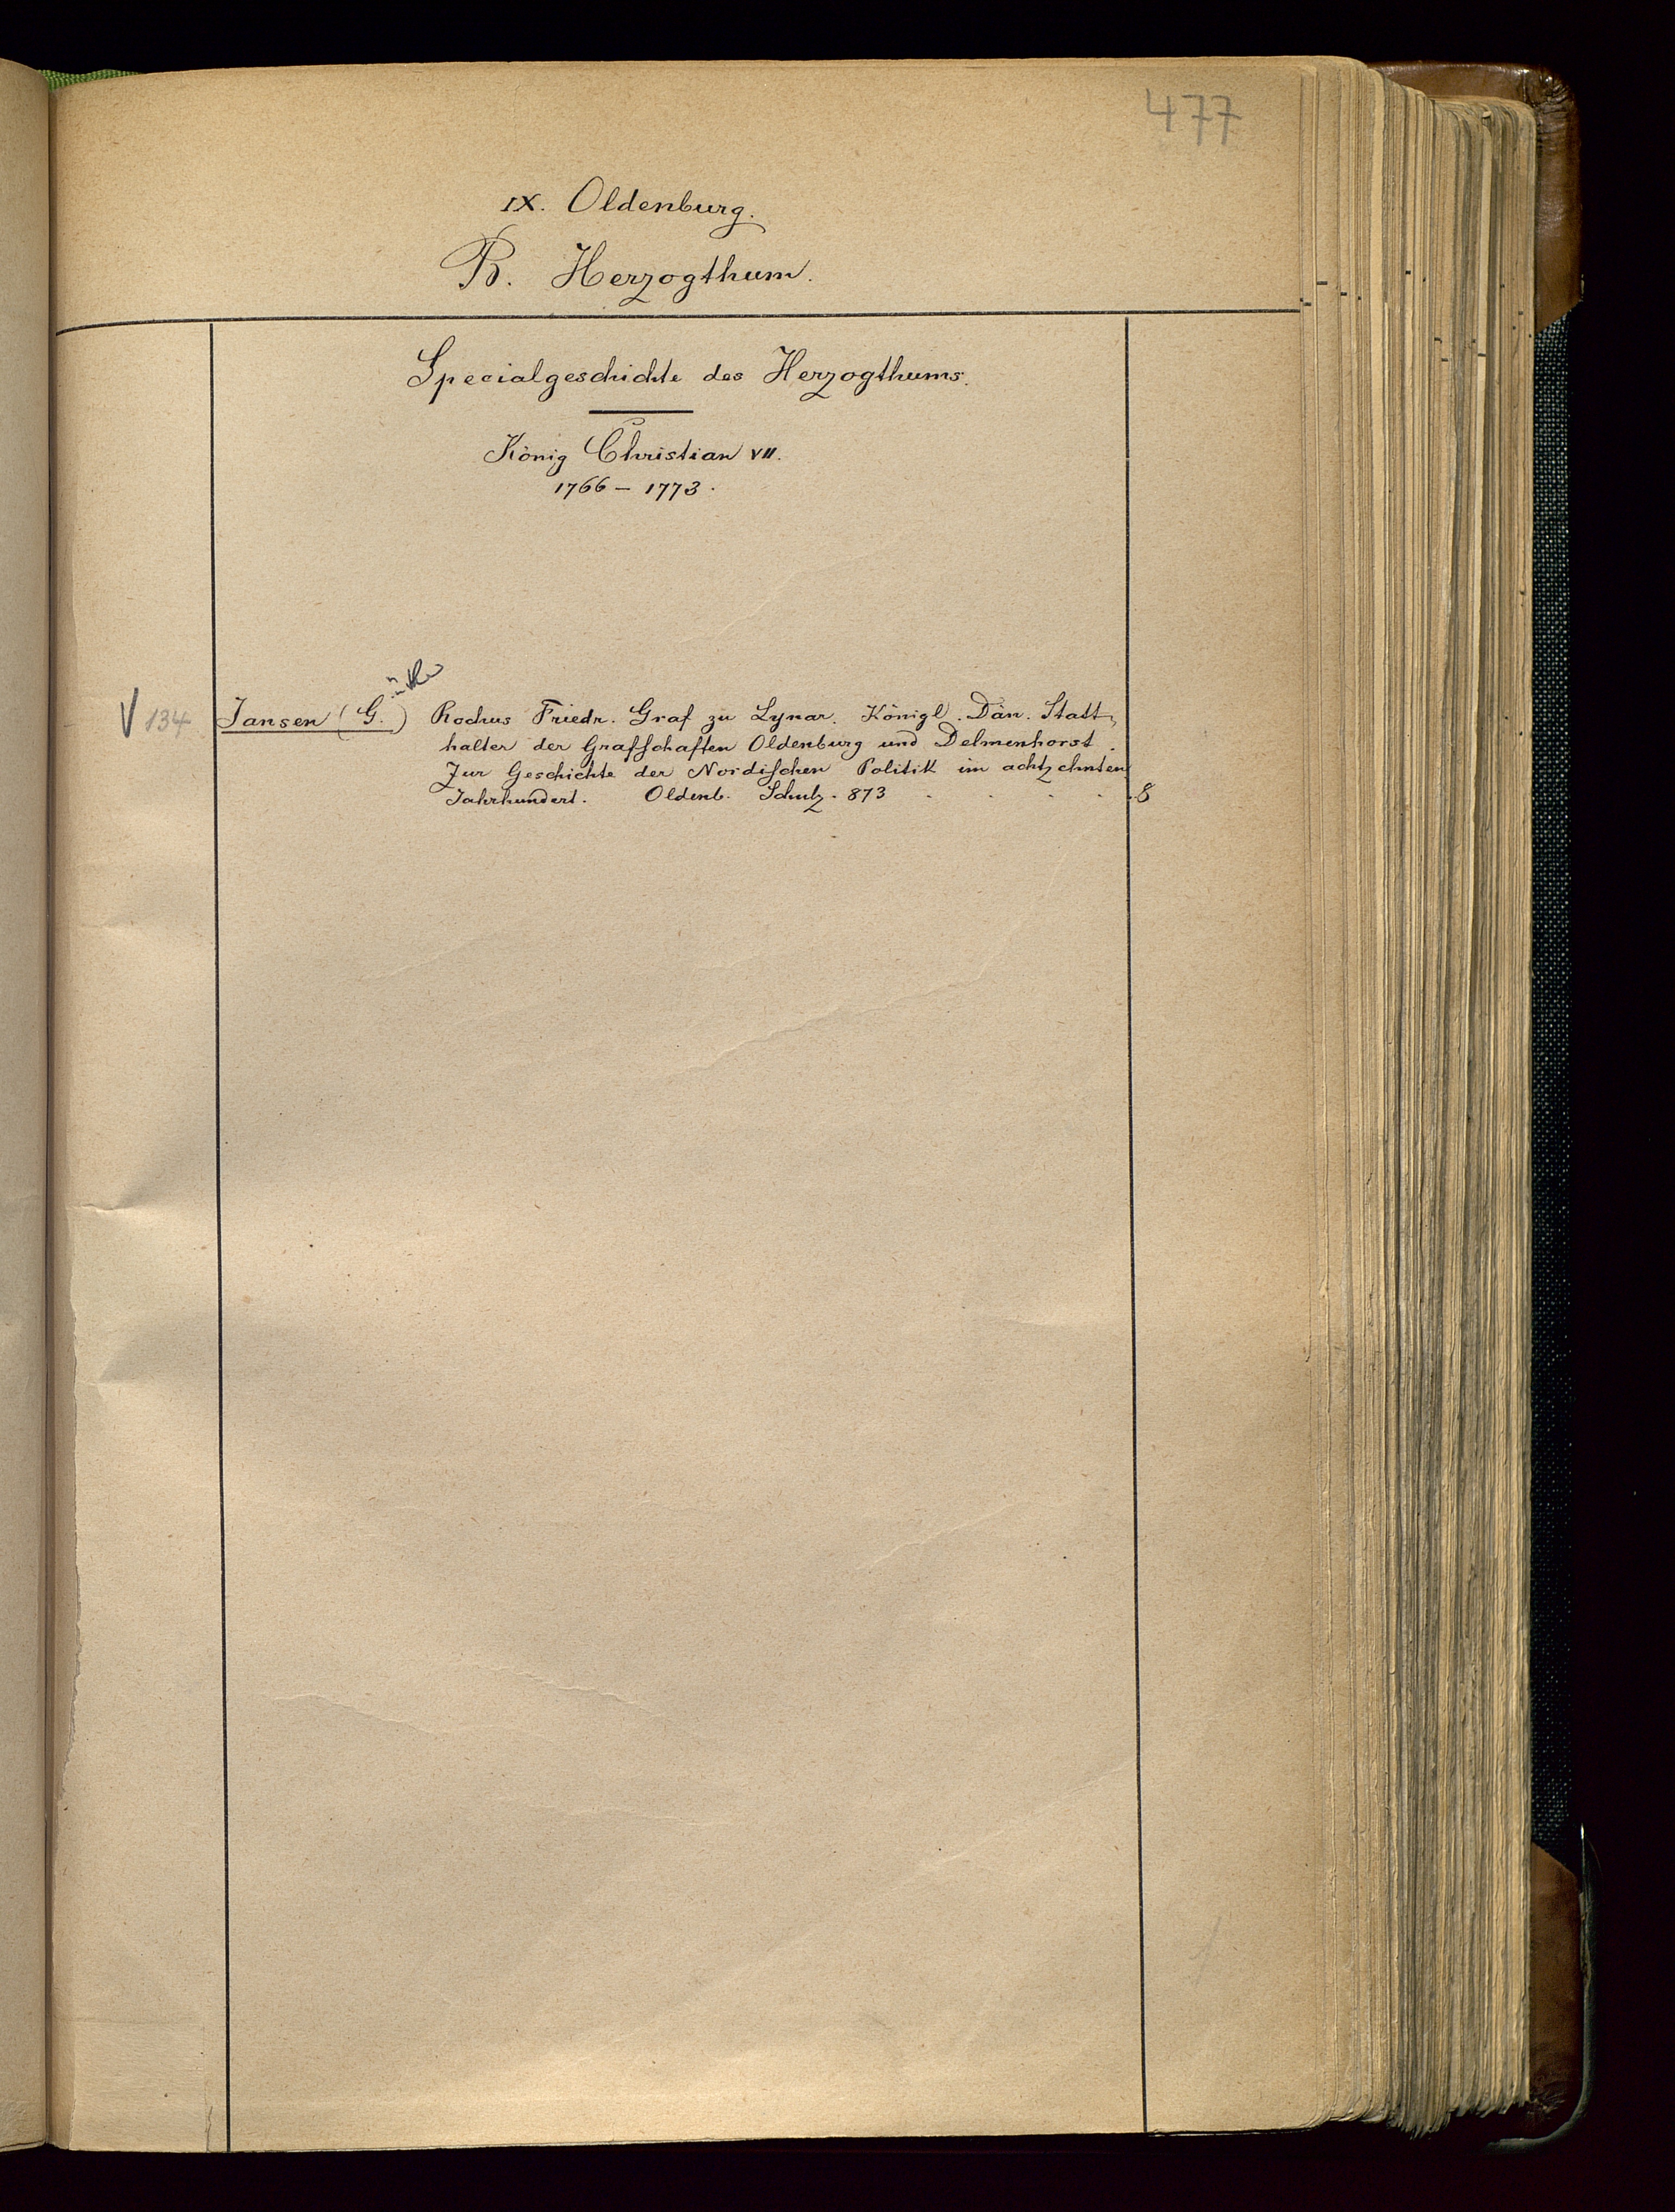 477
IX. Oldenburg.
B. Herzogthum.
Specialgeschichte des Herzogthums.
König Christian VII.
1766 – 1773.
V 134 Jansen (G.) Rochus Friedr. Graf zu Lynar. Königl. Dän. Statt-
halter der Grafschaften Oldenburg und Delmenhorst.
Zur Geschichte der Nordischen Politik im achtzehnten
Jahrhundert. Oldenb. Schulz. 873 . . . . . 8